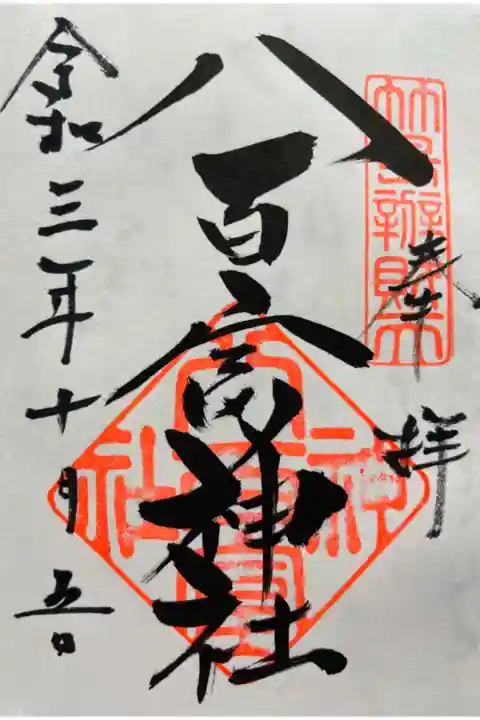 竹島辨財天
奉拝
八百富神社
令和三年十月五日